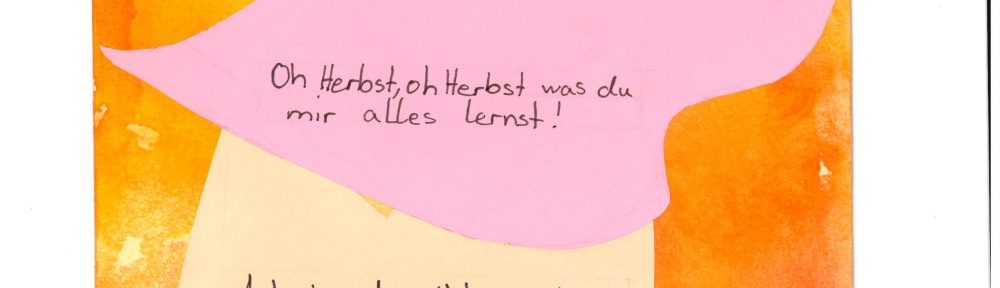 Oh Herbst, oh Herbst was du
mir alles lernst!